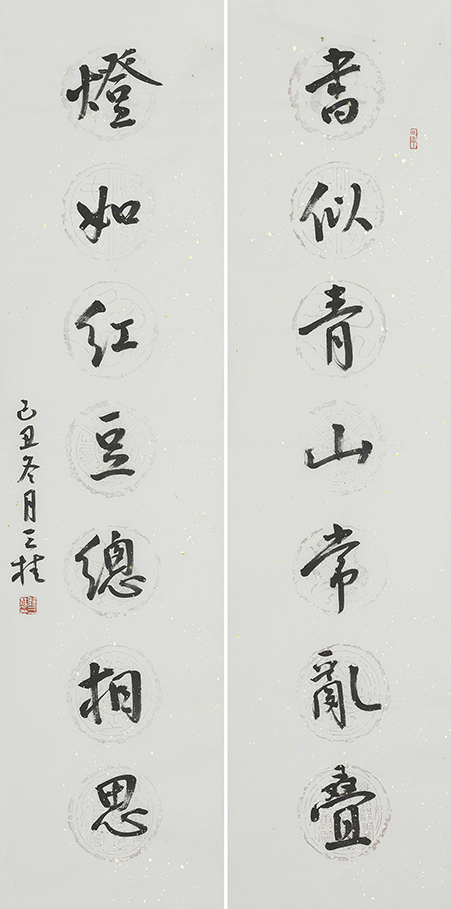 書似青山常亂疊
燈如紅豆總相思
己丑冬月三桂